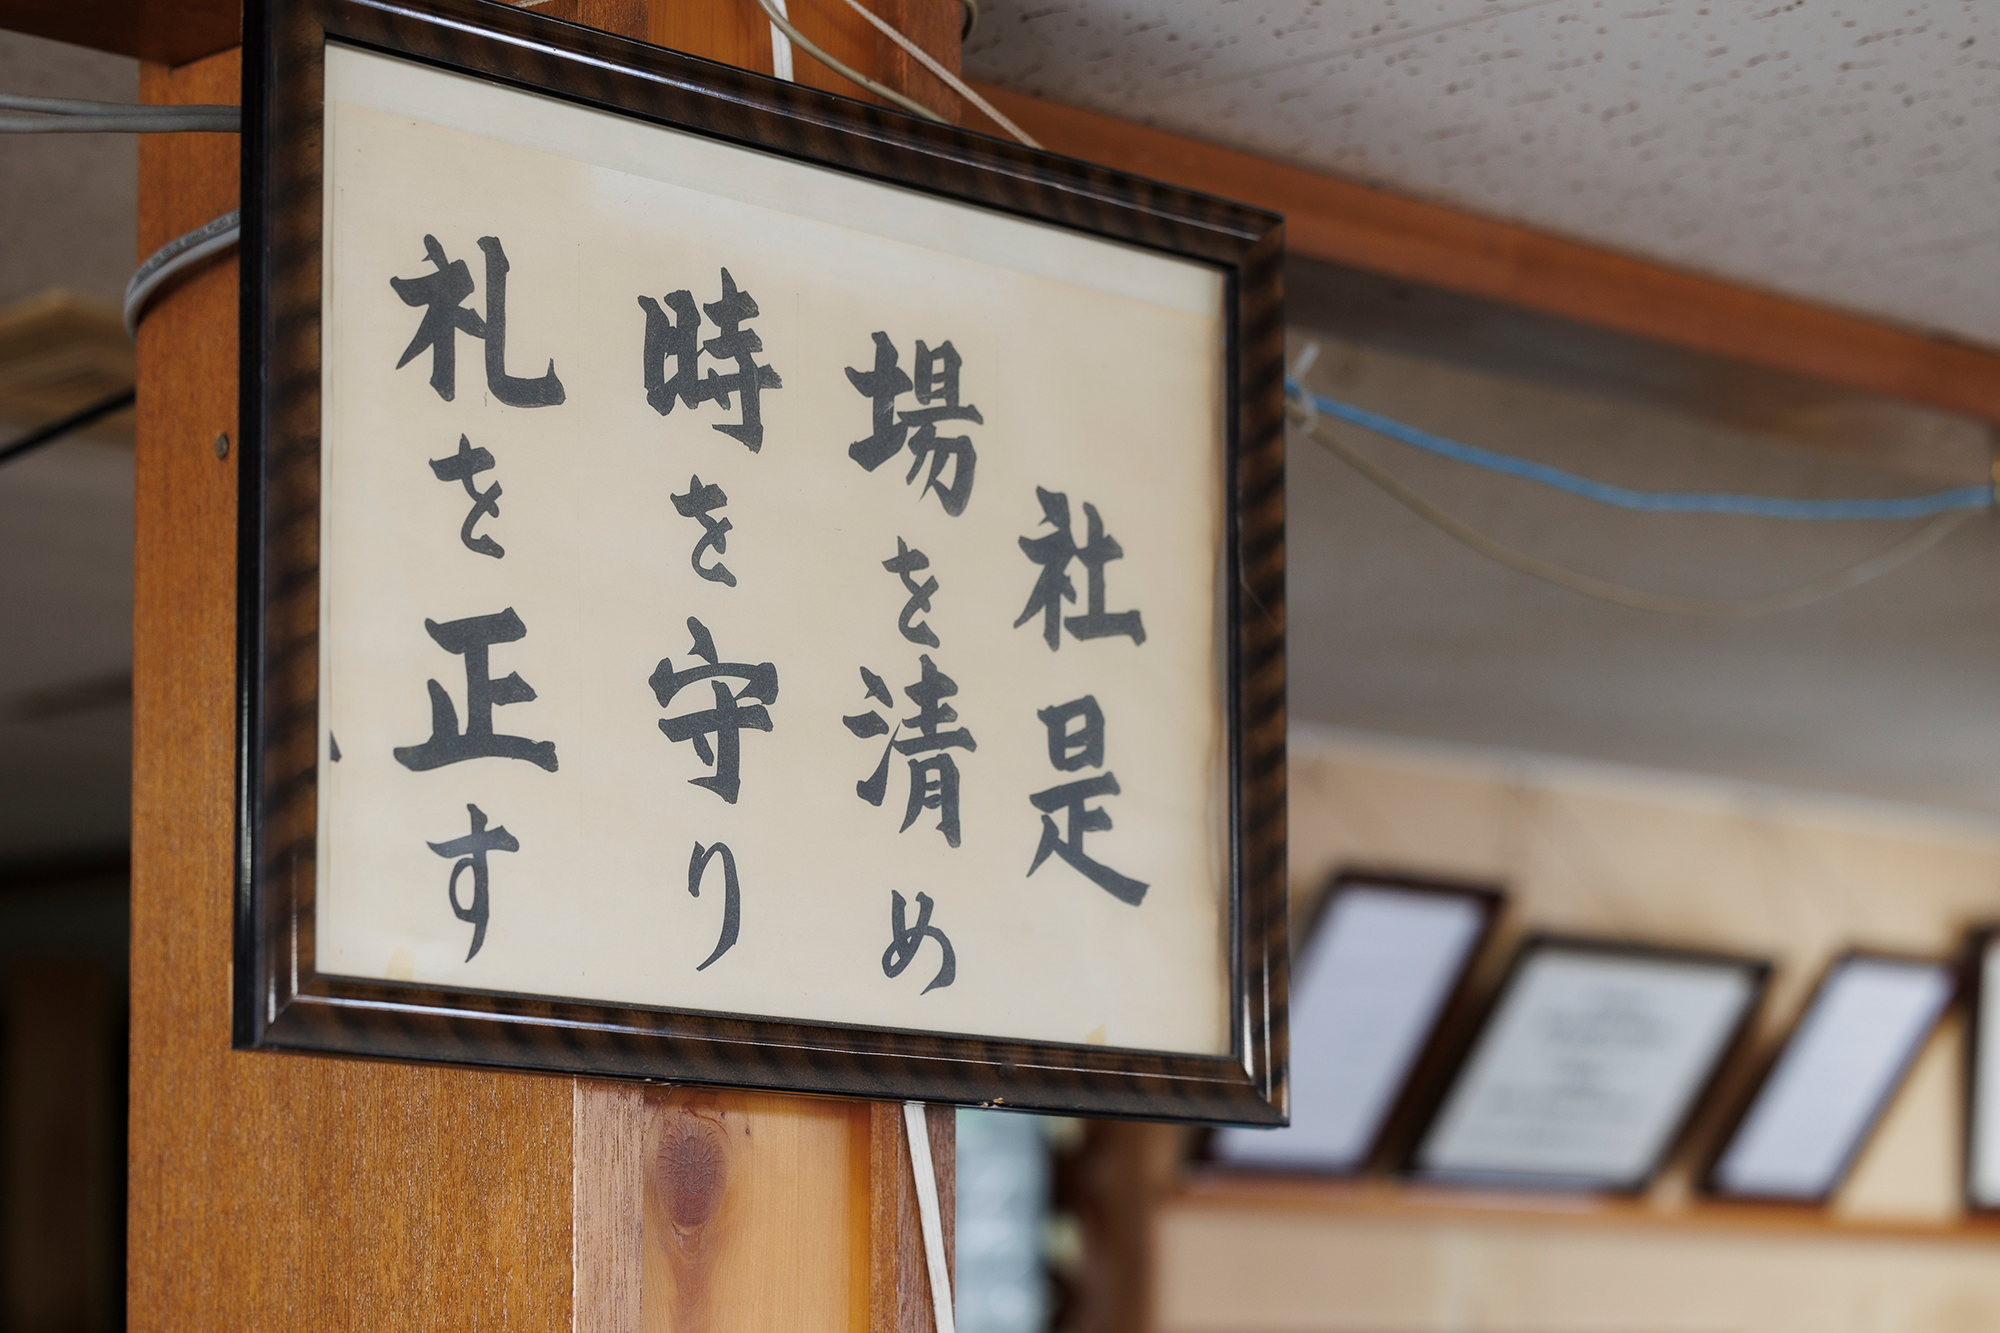 社是
場を清め
時を守り
礼を正す